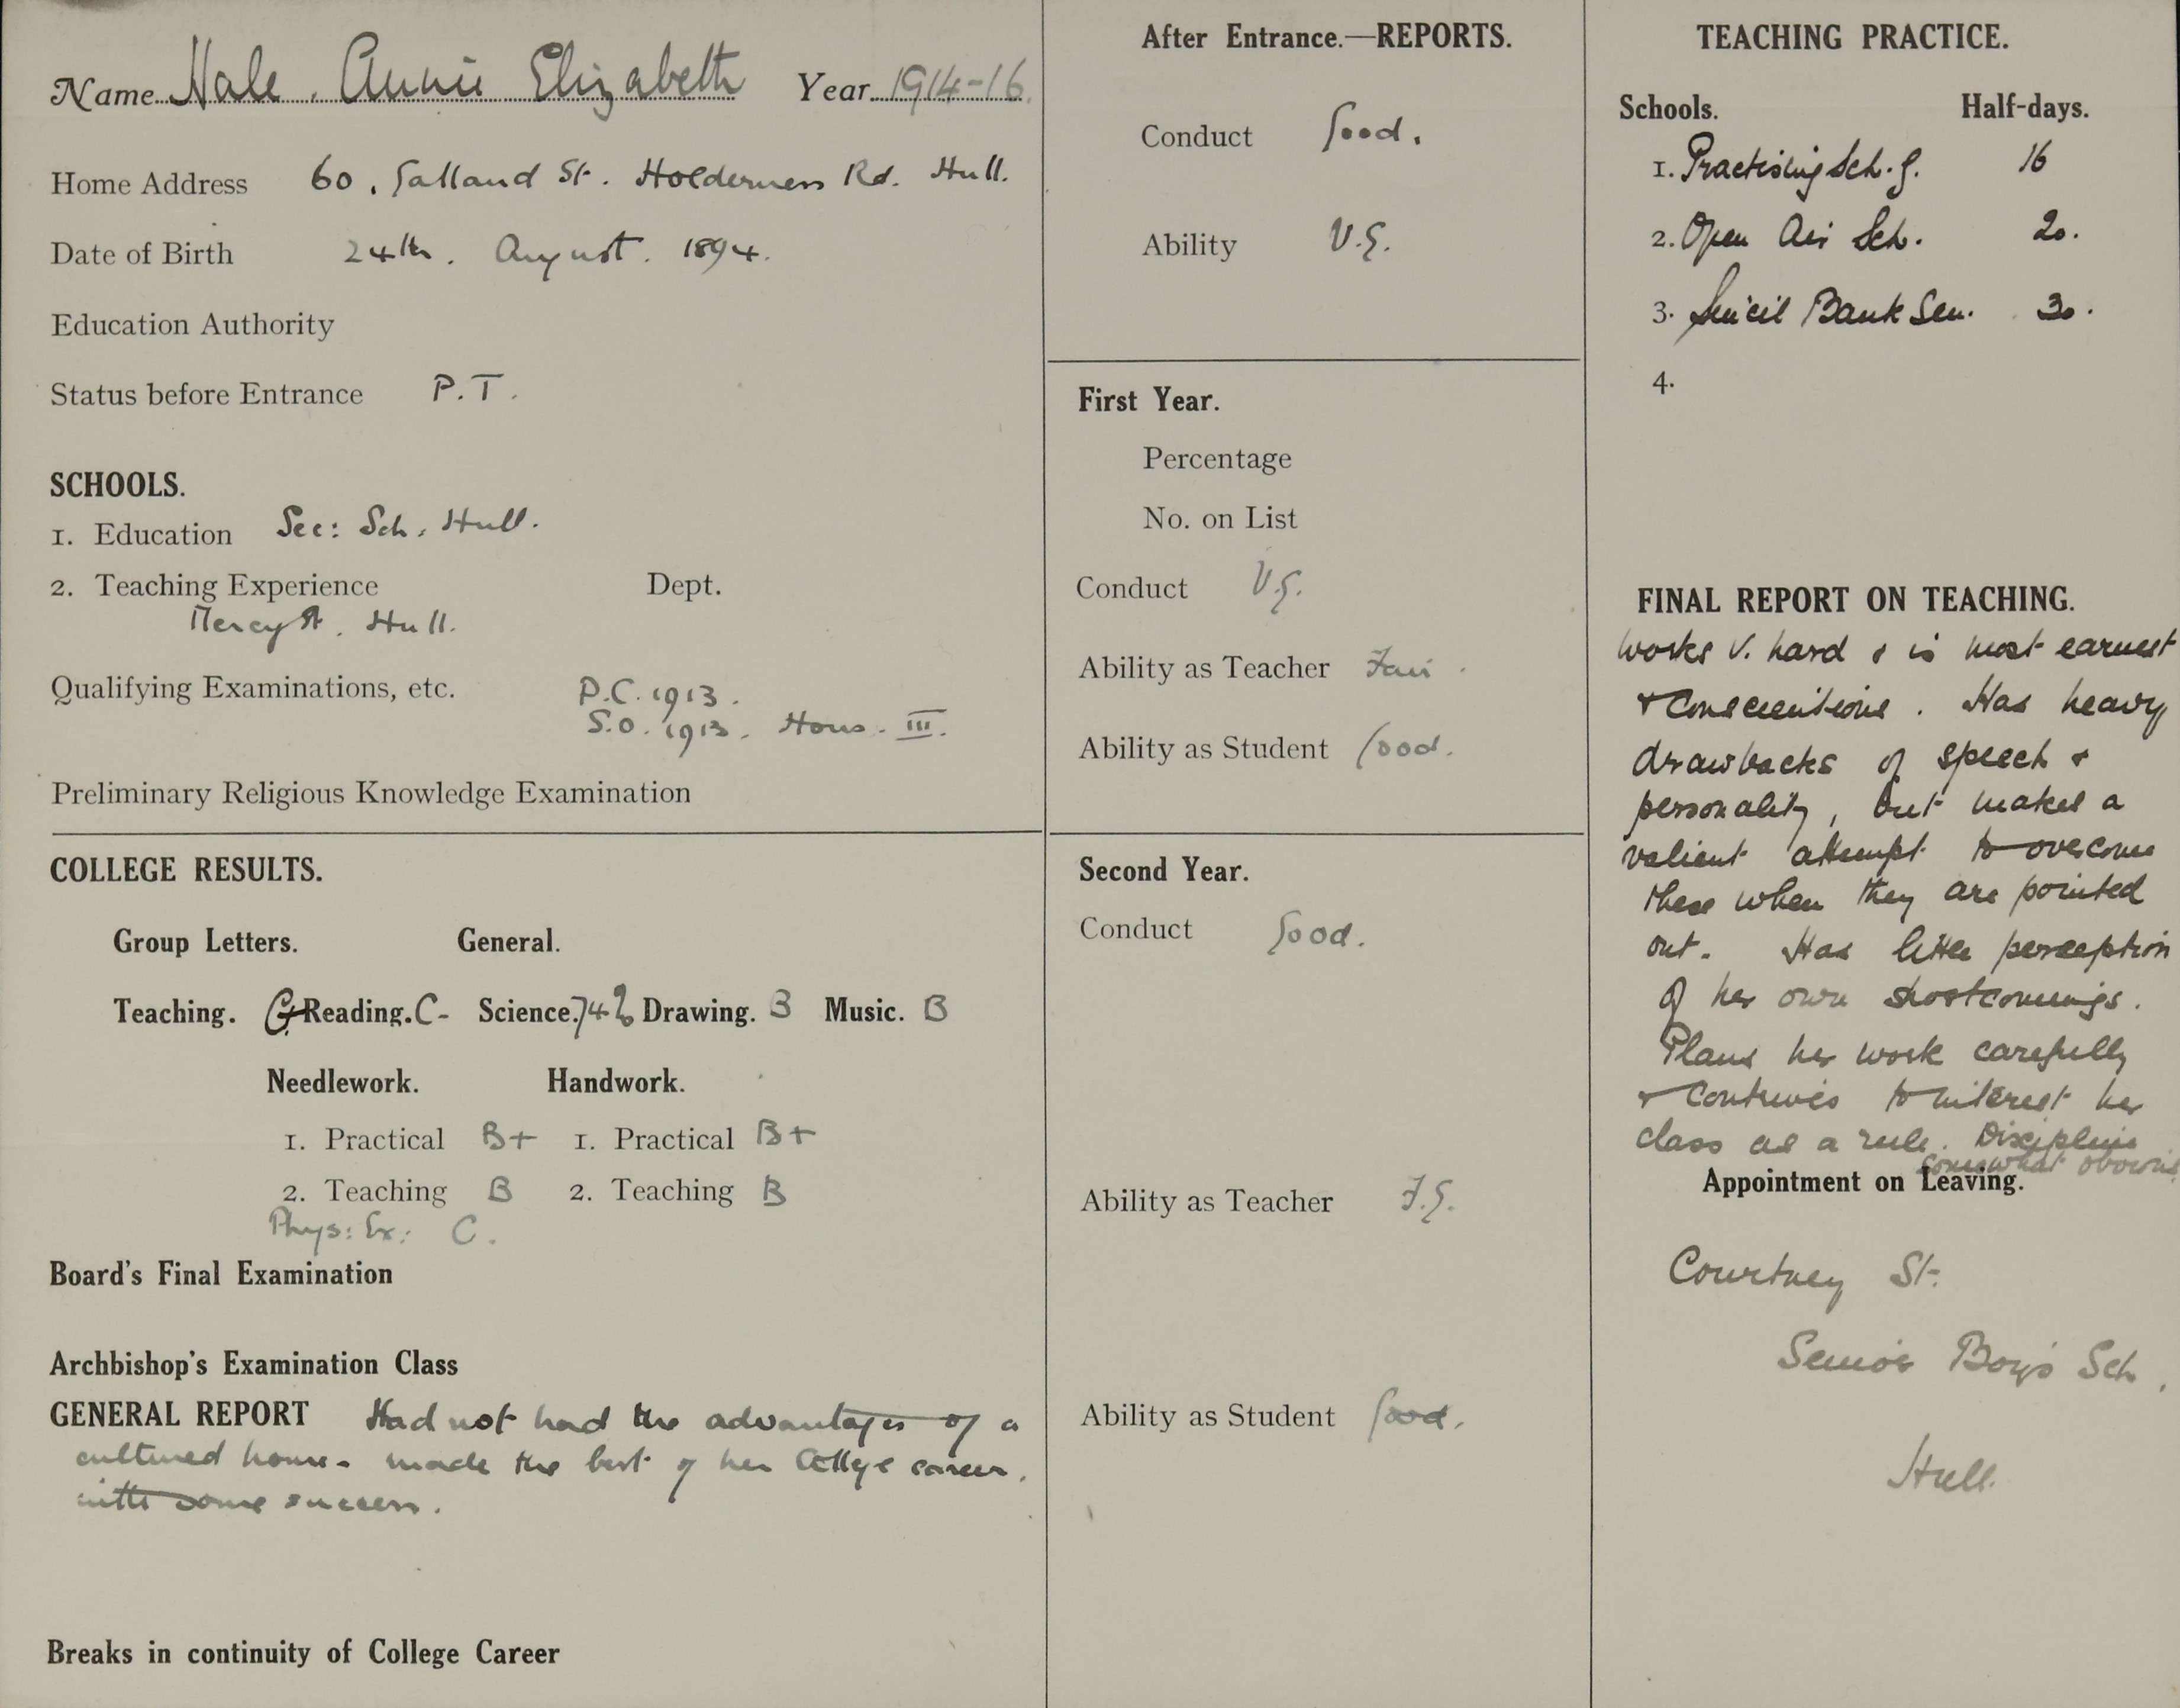 Name Hale, Annie Elizabeth Year 1914-16.
Home Address 60, Galland St. Holderness Rd. Hull.
Date of Birth 24th. August. 1894.
Education Authority
Status before Entrance P.T.
SCHOOLS.
1. Education Sec: Sch, Hull.
2. Teaching Experience Dept.
Mercy St. Hull.
Qualifying Examinations, etc. P.C. 1913.
S.O. 1913. Hons. III.
Preliminary Religious Knowledge Examination
COLLEGE RESULTS.
Group Letters. General.
Teaching. C+ Reading. C- Science. 74% Drawing. B Music. B
Needlework. Handwork.
1. Practical B+ 1. Practical B+
2. Teaching B 2. Teaching B
Phys: Ex: C.
Board's Final Examination
Archbishop's Examination Class
GENERAL REPORT Had not had the advantages of a
cultured home - made the best of her College career,
with some success.
Breaks in continuity of College Career
After Entrance.—REPORTS.
Conduct Good.
Ability V.G.
First Year.
Percentage
No. on List
Conduct V.G.
Ability as Teacher Fair.
Ability as Student Good.
Second Year.
Conduct Good.
Ability as Teacher F.G.
Ability as Student Good.
TEACHING PRACTICE.
Schools. Half-days.
1. Practising Sch. G. 16
2. Open Air Sch. 20.
3. Sincil Bank Sen. 30.
4.
FINAL REPORT ON TEACHING.
works v. hard & is most earnest
& conscientious. Has heavy
drawbacks of speech &
personality, but makes a
valient attempt to overcome
these when they are pointed
out. Has little perception
of her own shortcomings.
Plans her work carefully
& contrives to interest her
class as a rule. Discipline
somewhat
Appointment on Leaving.
Courtney St.
Senior Boys Sch,
Hull.